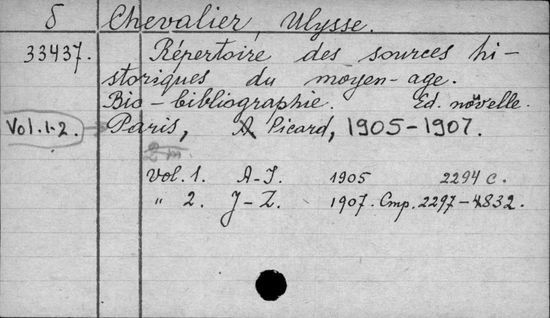 δ Chevalier, Ulysse.
33437. Répertoire des sources hi-
storiques du moyen-age.
Bio-bibliographie. Ed. nouvelle.
Vol. 1-2. Paris, A. Picard, 1905-1907.
2 m
Vol. 1. A-I. 1905 2294 c.
" 2. J-Z. 1907. Cmp. 2297-4832.